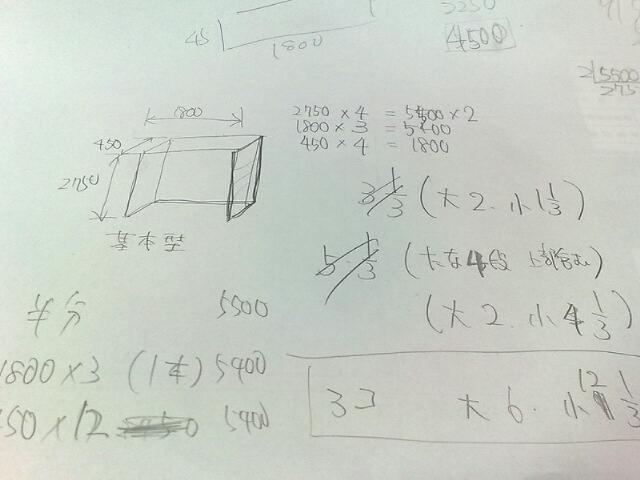 3250
45
1800
4500
2)5500
275
1800
450
2750
基本型
2750×4 = 5500×2
1800×3 = 5400
450×4 = 1800
3 1/3 (大2.小1 1/3)
5.1/3 (たな4段 上部含む)
(大2.小4 1/3)
半分 5500
1800×3 (1本) 5400
50×12 5400
3コ 大6.小12 1/3